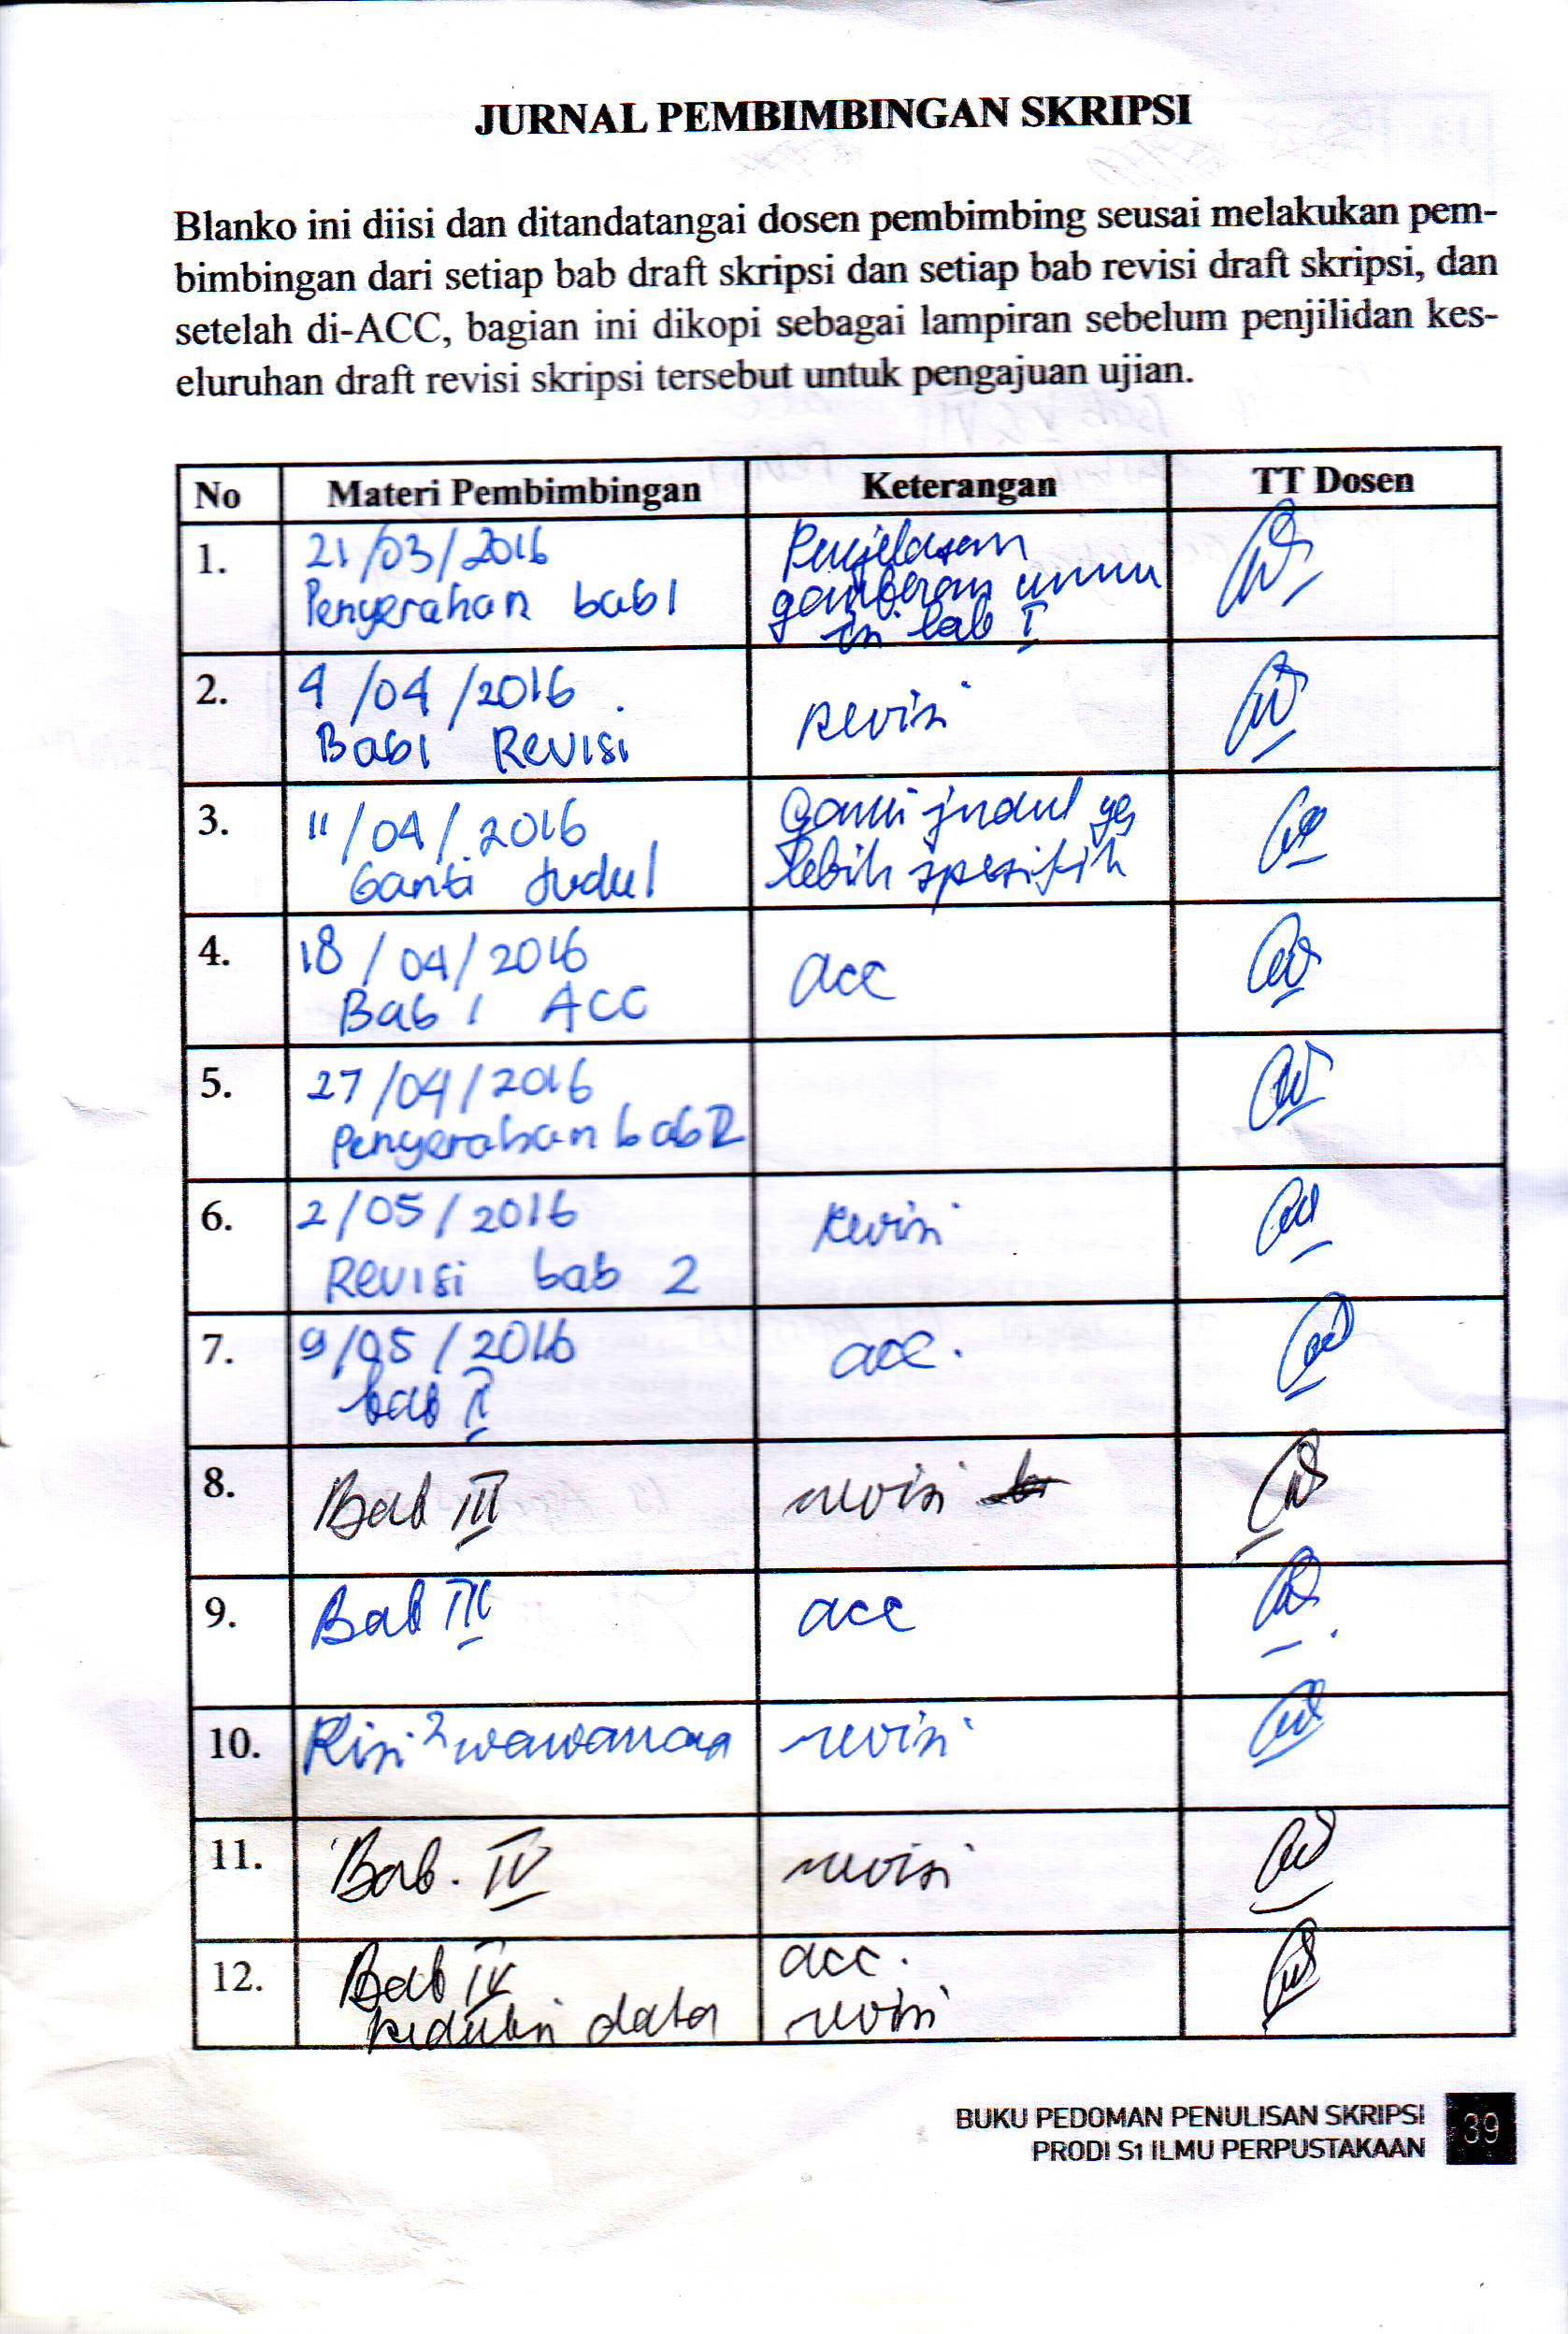 JURNAL PEMBIMBINGAN SKRIPSI
Blanko ini diisi dan ditandatangai dosen pembimbing seusai melakukan pem-
bimbingan dari setiap bab draft skripsi dan setiap bab revisi draft skripsi, dan
setelah di-ACC, bagian ini dikopi sebagai lampiran sebelum penjilidan kes-
eluruhan draft revisi skripsi tersebut untuk pengajuan ujian.
No Materi Pembimbingan Keterangan TT Dosen
1. 21/03/2016 Penjelasan
Penyerahan bab 1 gambaran umum
bab I
2. 4/04/2016 revisi
Bab 1 Revisi
3. 11/04/2016 Ganti judul yg
Ganti Judul lebih spesifik
4. 18/04/2016 acc
Bab 1 ACC
5. 27/04/2016
Penyerahan bab 2
6. 2/05/2016 revisi
Revisi bab 2
7. 9/05/2016 acc.
bab II
8. Bab III revisi
9. Bab III acc
10. wawancara revisi
11. Bab. IV revisi
12. Bab IV acc.
data revisi
BUKU PEDOMAN PENULISAN SKRIPSI
PRODI S1 ILMU PERPUSTAKAAN
39